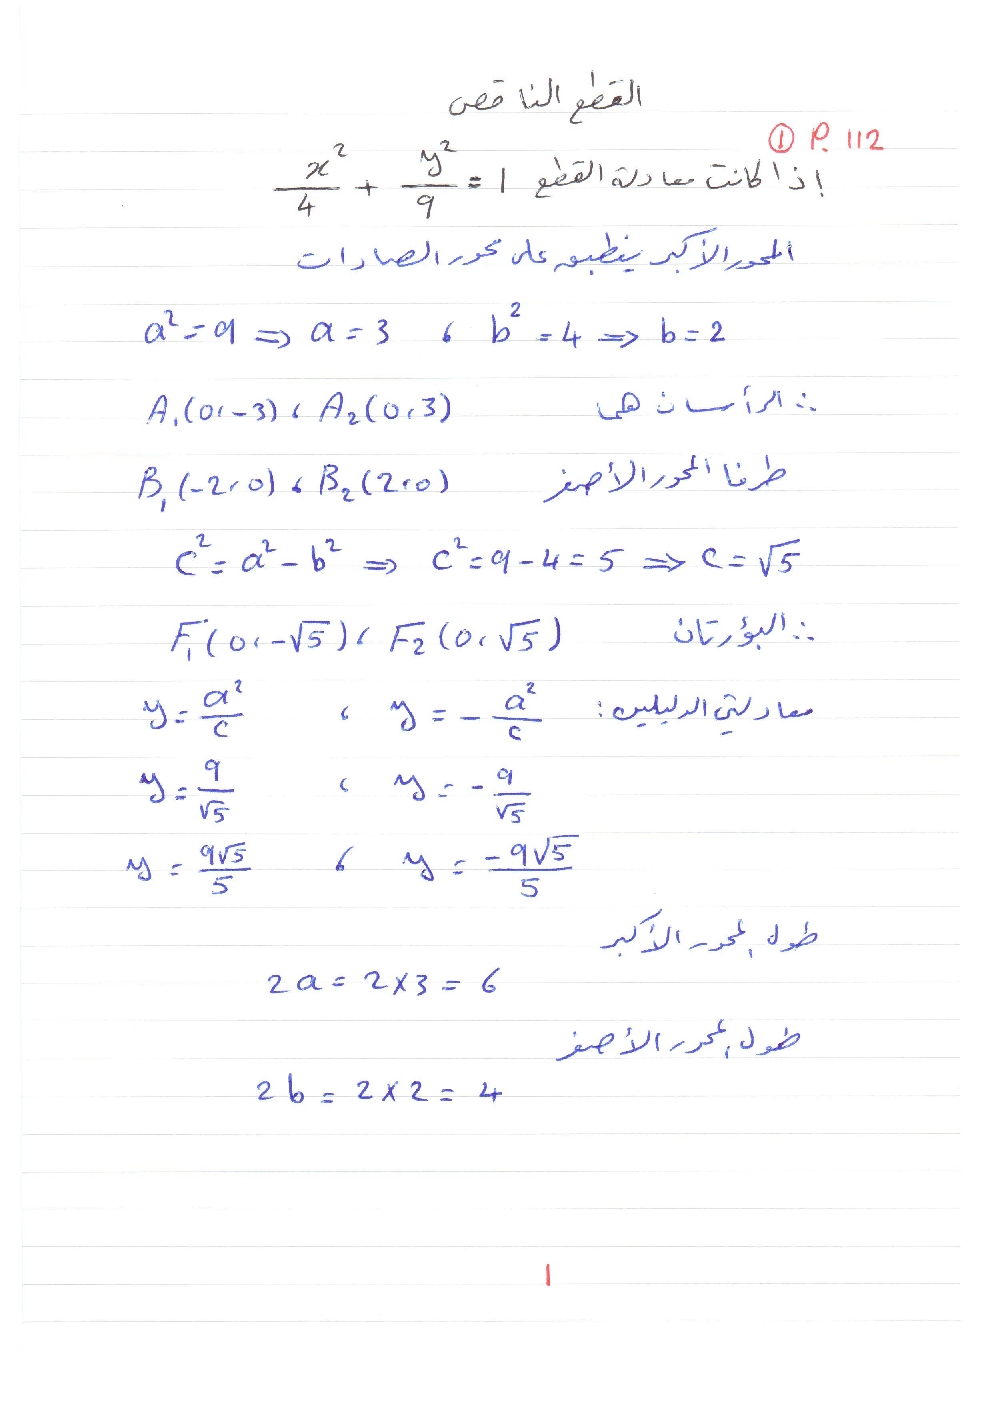 القطع الناقص
① P. 112
إذا كانت معادلة القطع x²/4 + y²/9 = 1
المحور الأكبر ينطبق على محور الصادات
a² = 9 ⇒ a = 3 ، b² = 4 ⇒ b = 2
∴ الرأسان هي A₁(0،-3) ، A₂(0،3)
طرفا المحور الأصغر B₁(-2،0) ، B₂(2،0)
c² = a² - b² ⇒ c² = 9 - 4 = 5 ⇒ c = √5
∴ البؤرتان F₁(0،-√5) ، F₂(0،√5)
معادلتي الدليلين: y = a²/c ، y = - a²/c
y = 9/√5 ، y = - 9/√5
y = 9√5/5 ، y = -9√5/5
طول المحور الأكبر
2a = 2×3 = 6
طول المحور الأصغر
2b = 2×2 = 4
1